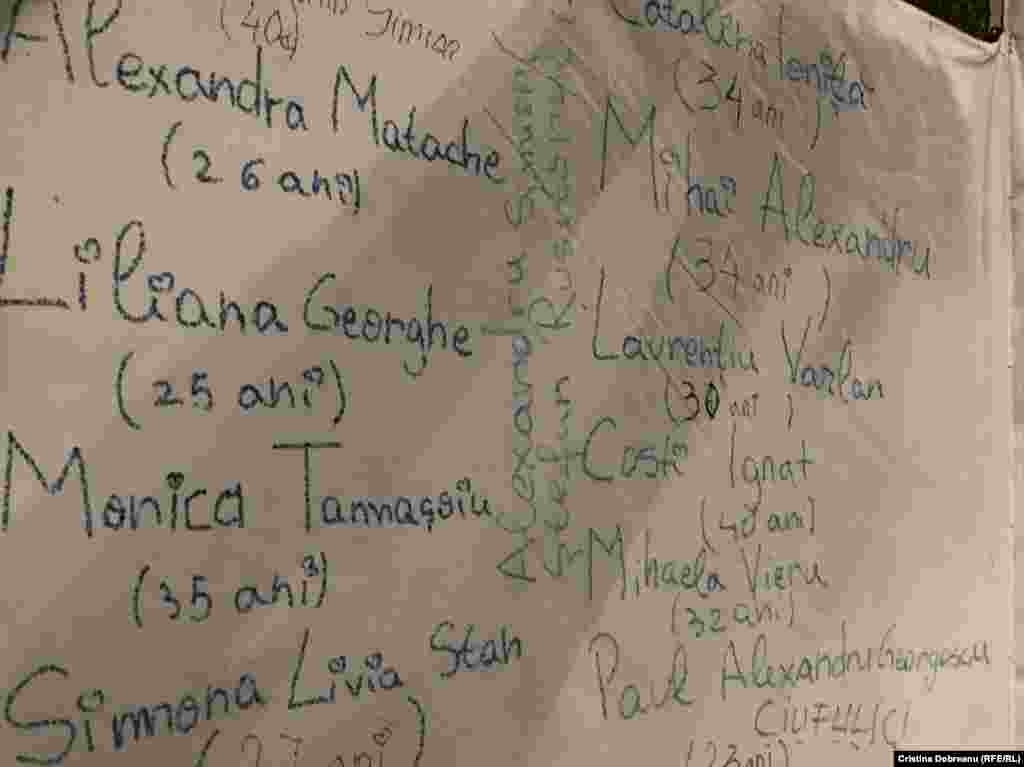 (40
Alexandra Matache
(26 ani)
Liliana Georghe
(25 ani)
Monica Tannașoiu
(35 ani)
Simona Livia Stan
(27 ani)
Alexandru
Ștefan
Catalina Ionița
(34 ani)
Mihai Alexandru
(34 ani)
Laurențiu Varlan
(30 ani)
Costi Ignat
(40 ani)
Mihaela Vieru
(32 ani)
Paul Alexandru Georgescu
(23 ani)
Cristina Dobreanu (RFE/RL)